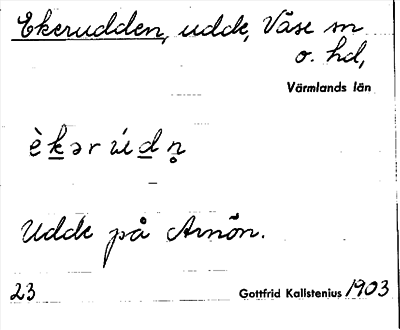 Ekerudden, udde, Väse sn
o. hd,
Värmlands län
èkər údn̥
Udde på Arnön.
23 Gottfrid Kallstenius 1903